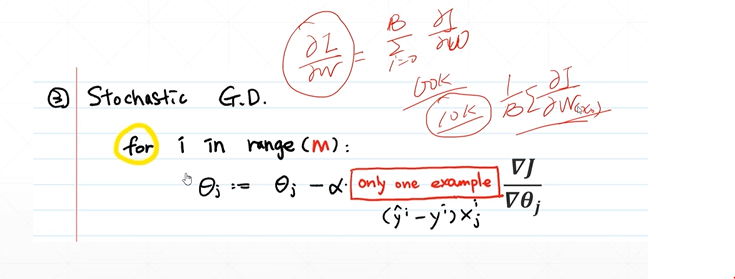 ∂L/∂W = B Σ i=0 ∂J/∂W
60K/10K 1/B Σ ∂J/∂W
③ Stochastic G.D.
for i in range (m):
θj := θj - α· only one example ∇J/∇θj
(ŷⁱ - yⁱ) xⱼⁱ